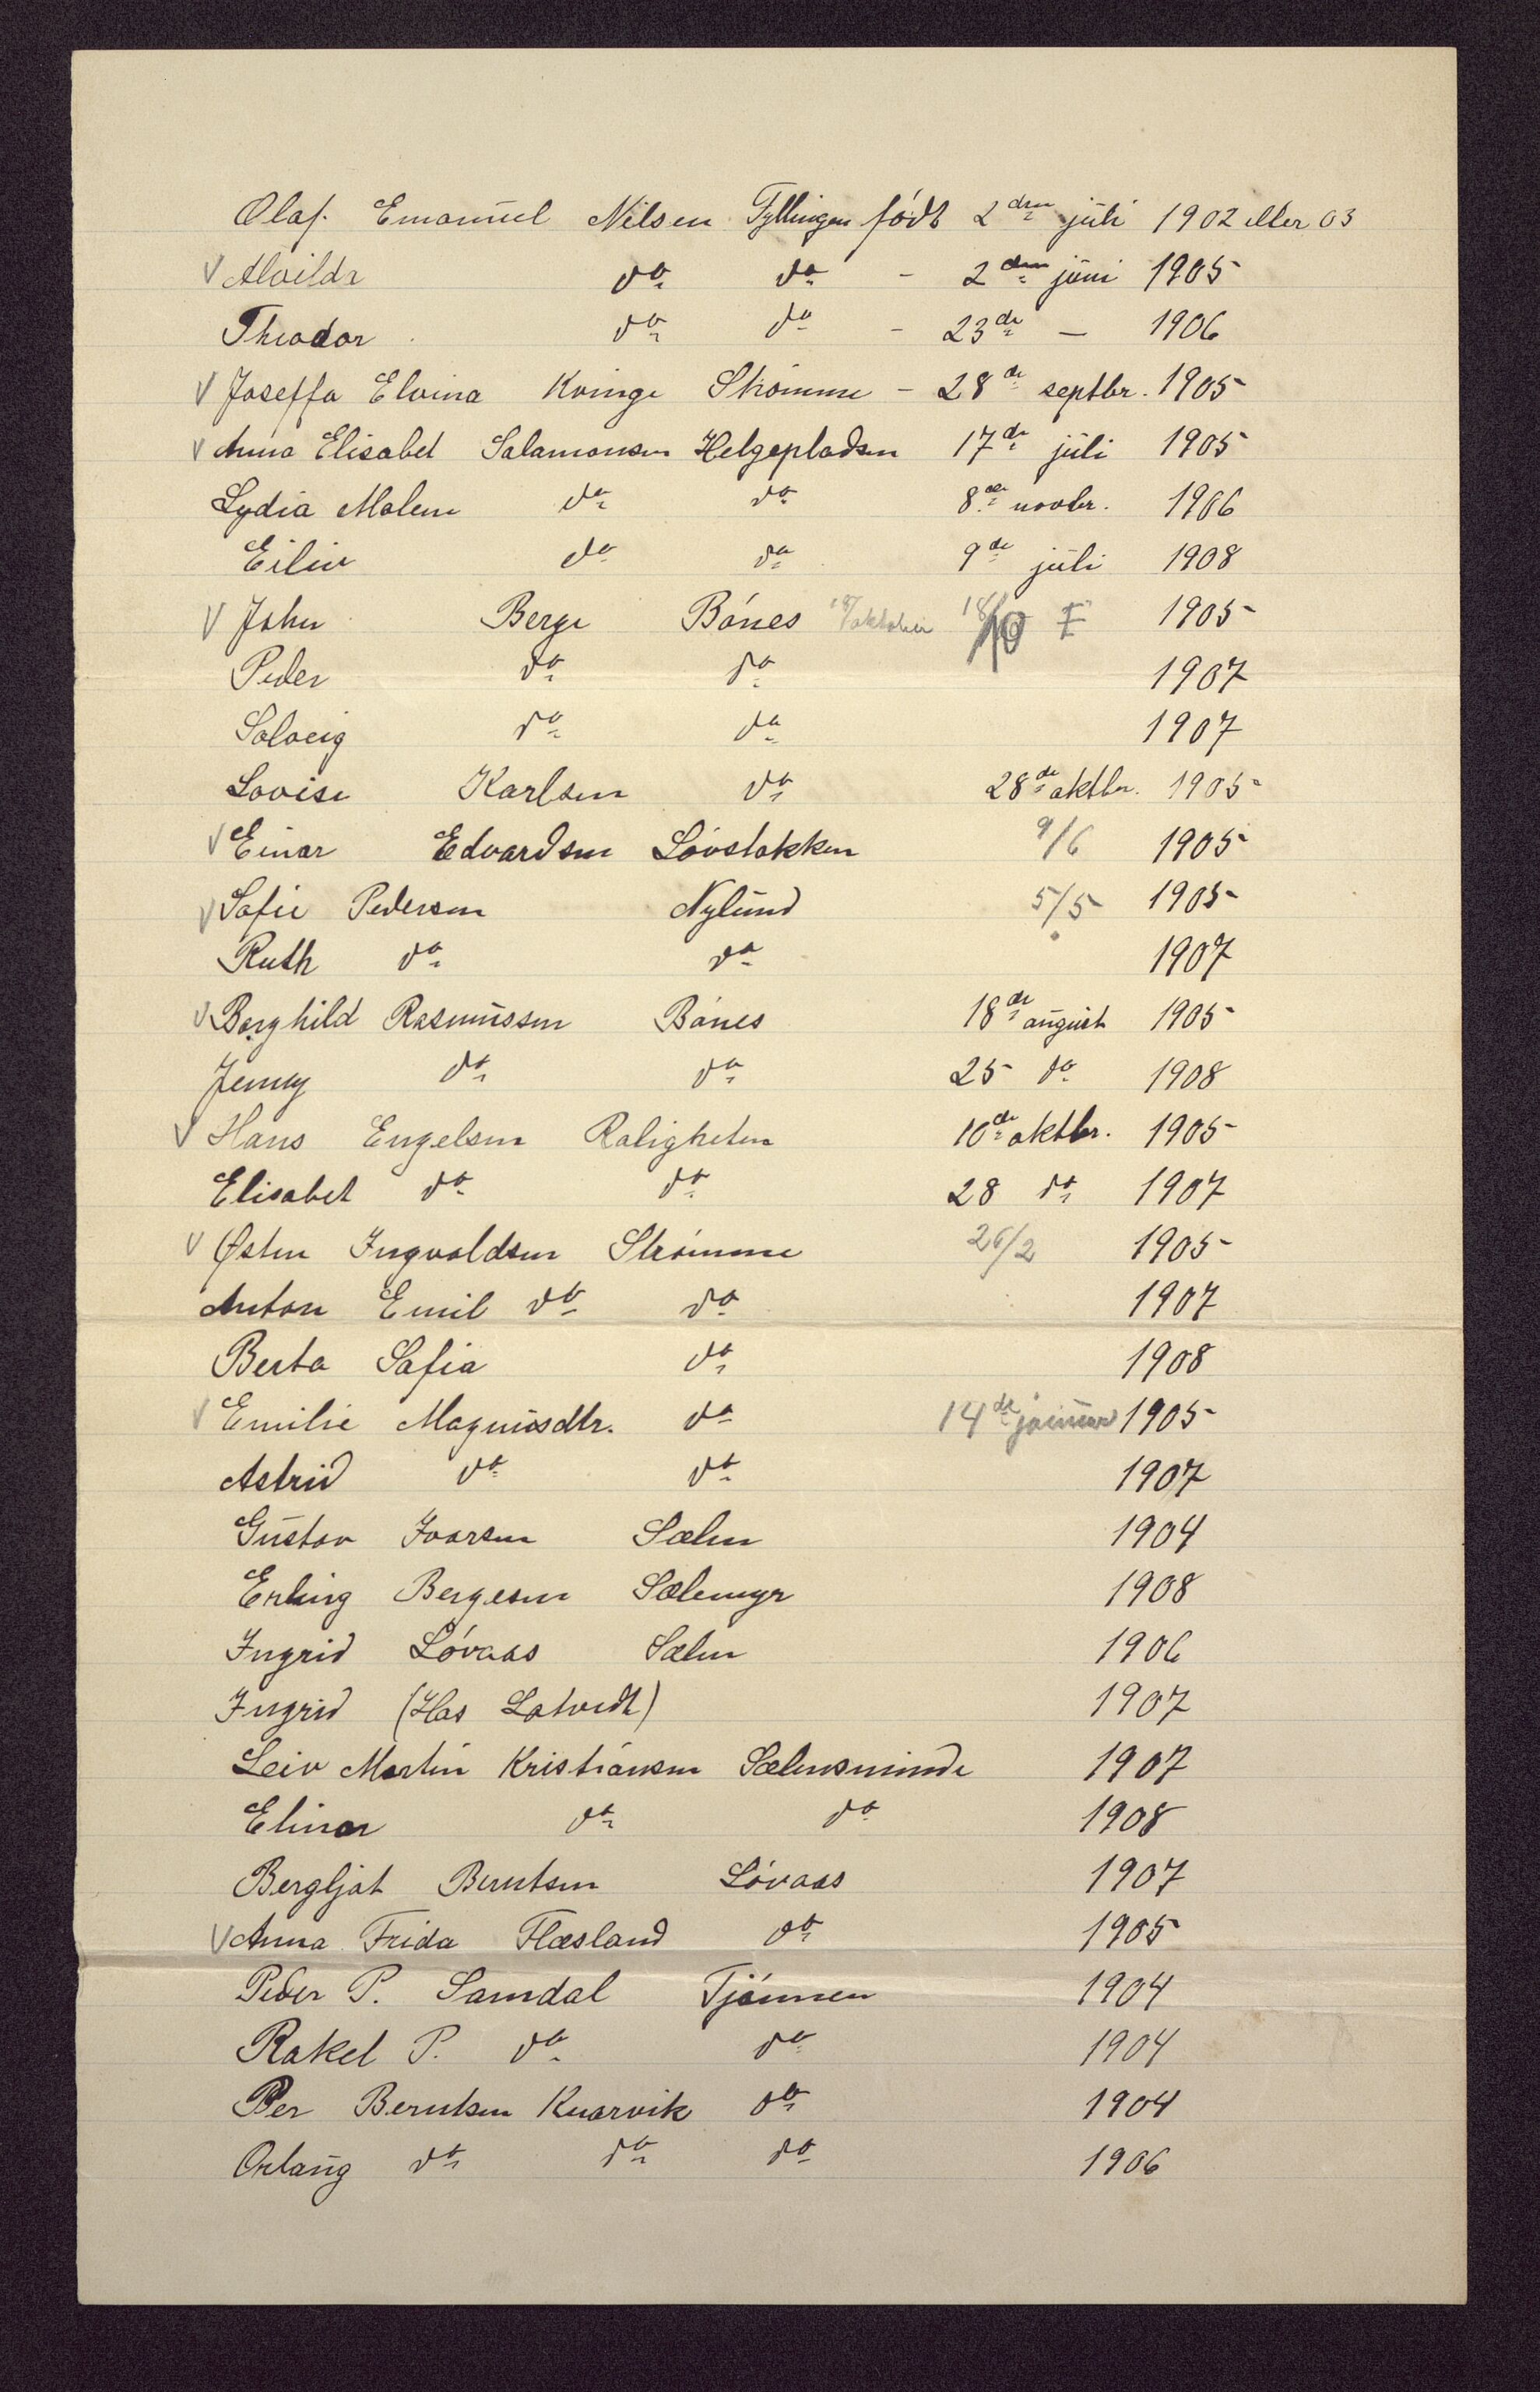 Olaf Emanuel Nilsen Fyllingen født 2den juli 1902 eller 03
V Alvilde do do - 2den juni 1905
Theodor do do - 23de - 1906
V Joseffa Elvina Kvinge Strømme - 28de septbr. 1905
V Anna Elisabet Salamonsen Helgepladsen 17de juli 1905
Lydia Malene do do 8de novbr. 1906
Eiliv do do 9de juli 1908
V John Berge Bønes 18/ oktober 18/10 1905
Peder do do 1907
Solveig do do 1907
Lovise Karlsen do 28de oktbr. 1905
V Einar Edvardsen Løvstakken 9/6 1905
V Sofie Pedersen Nylund 5/5 1905
Ruth do do 1907
V Borghild Rasmussen Bønes 18de august 1905
Jenny do do 25 do 1908
V Hans Engelsen Roligheten 10de oktbr. 1905
Elisabet do do 28 do 1907
V Østen Ingvoldsen Strømme 26/2 1905
Anton Emil do do 1907
Berta Sofia do 1908
V Emilie Magnusdtr. do 14de januar 1905
Astrid do do 1907
Gustav Ivarsen Sælen 1904
Erling Bergesen Sælemyr 1908
Ingrid Løvaas Sælen 1906
Ingrid (Hos Lotvedt) 1907
Leiv Martin Kristiansen Sælensminde 1907
Elinor do do 1908
Bergljot Berntsen Løvaas 1907
V Anna Frida Flæsland do 1905
Peder P. Samdal Tjønnen 1904
Rakel P. do do 1904
Per Berntsen Knarvik do 1904
Orlaug do do do 1906